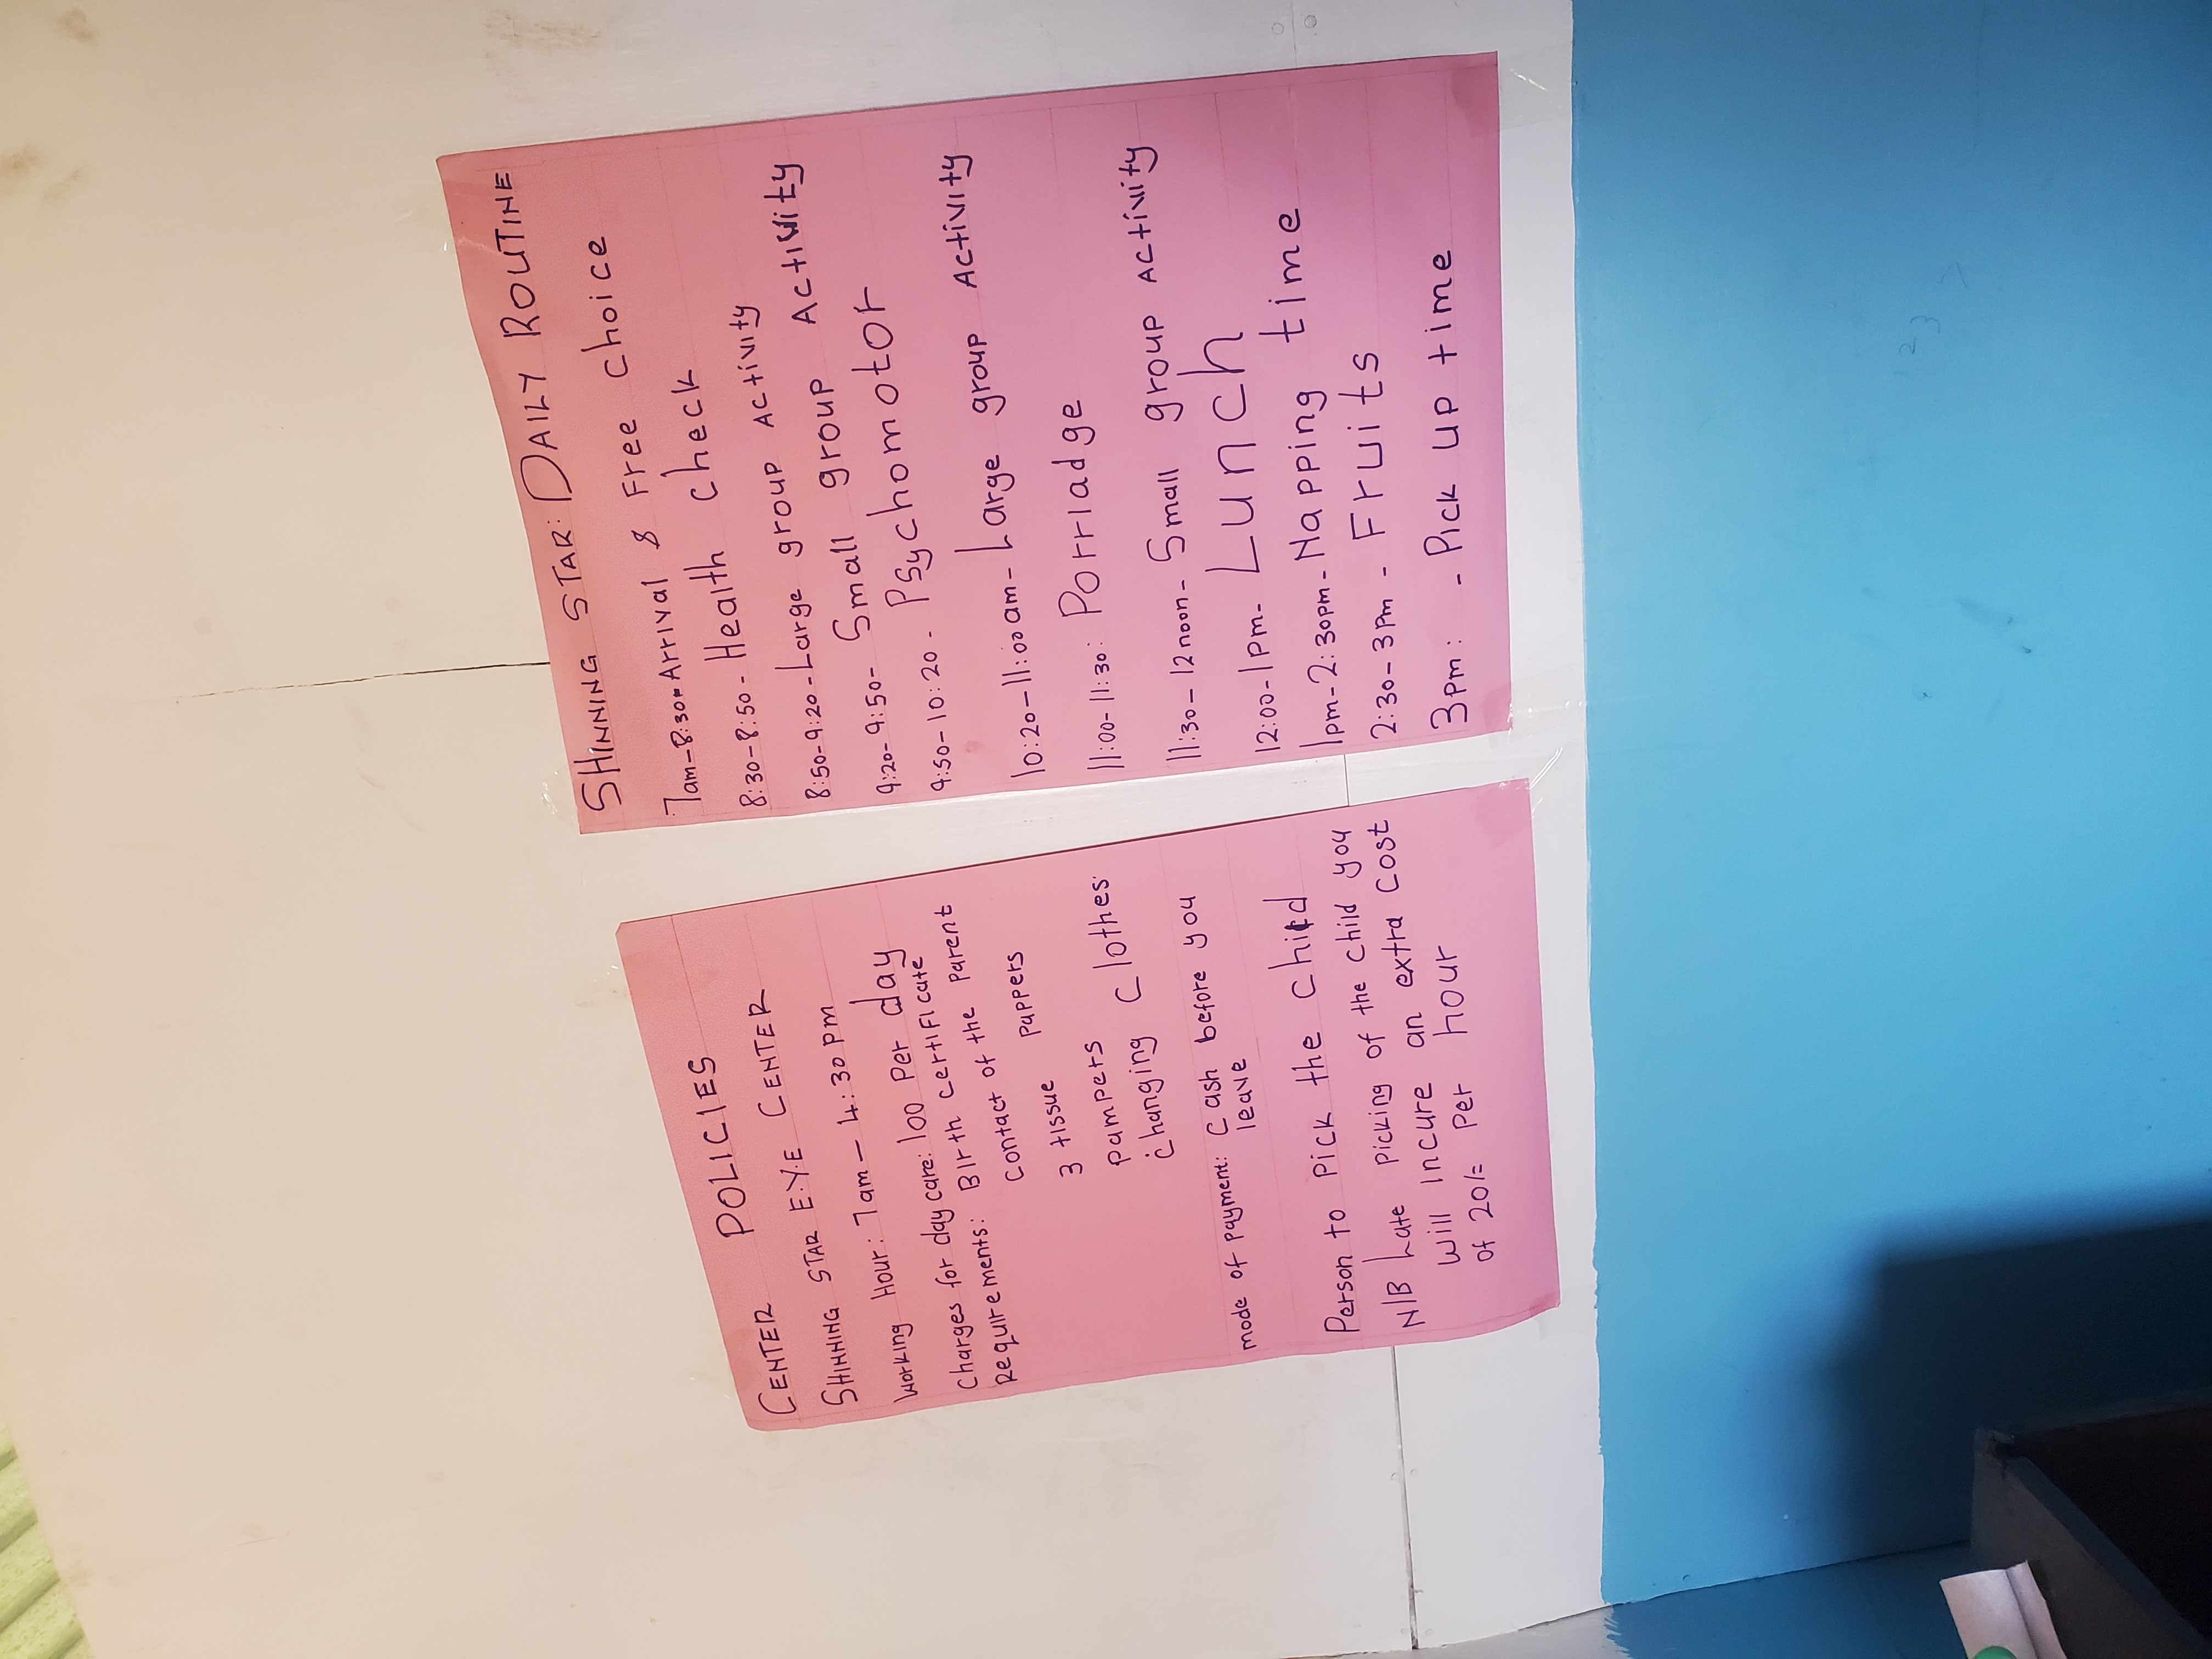 CENTER POLICIES
SHINNING STAR E.Y.E CENTER
Working Hour: 7am - 4:30pm
Charges for day care: 100 Per day
Requirements: Birth certificate
contact of the parent
3 tissue pappers
pampers
changing clothes
mode of payment: Cash before you
leave
Person to pick the child
N/B Late picking of the child you
will incure an extra cost
of 20/= per hour
SHINNING STAR: DAILY ROUTINE
7am-8:30-Arrival & Free choice
8:30-8:50- Health check
8:50-9:20-Large group Activity
9:20-9:50- Small group Activity
9:50-10:20- Psychomotor
10:20-11:00am- Large group Activity
11:00-11:30: Porriadge
11:30-12noon- Small group Activity
12:00-1pm- Lunch
1pm-2:30pm- Napping time
2:30-3pm - Fruits
3pm: - Pick up time